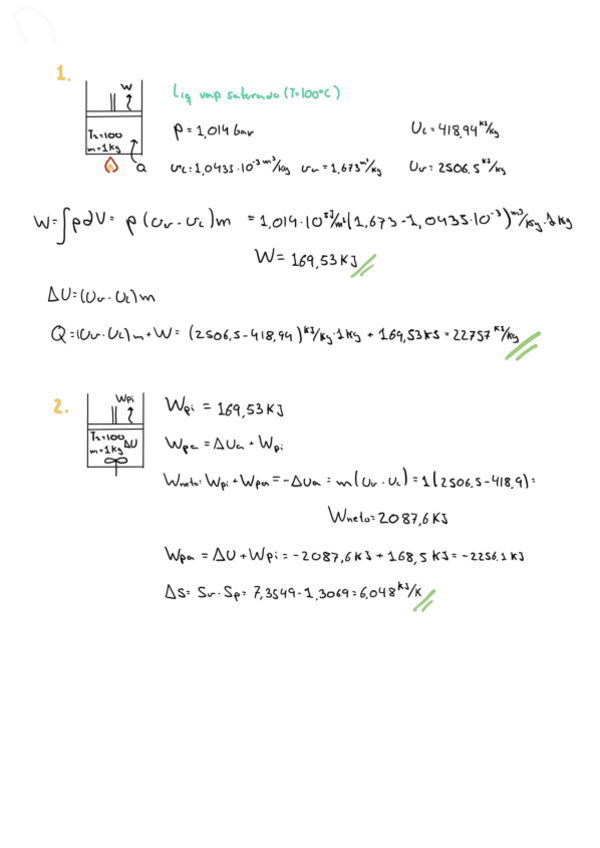 1.
W
T₁=100
m=1kg
Q
Liq vap saturado (T=100°C)
P = 1,014 bar
U_L = 418,94 kJ/kg
v_L = 1,0435·10⁻³ m³/kg v_v = 1,673 m³/kg
U_v = 2506,5 kJ/kg
W = ∫pdV = p(v_v - v_L)m = 1,014·10⁵ J/m³(1,673 - 1,0435·10⁻³) m³/kg · 1kg
W = 169,53 KJ
ΔU = (U_v - U_L)m
Q = (U_v - U_L)m + W = (2506,5 - 418,94) kJ/kg · 1kg + 169,53 KJ = 22757 kJ/kg
2.
Wpi
T₁=100
m=1kg
ΔU
Wpi = 169,53 KJ
Wpa = ΔUa + Wpi
Wneto = Wpi + Wpa = -ΔUa = m(U_v - U_L) = 1(2506,5 - 418,9) =
Wneto = 2087,6 KJ
Wpa = ΔU + Wpi = -2087,6 KJ + 168,5 KJ = -2256.1 KJ
ΔS = S_v - S_p = 7,3549 - 1,3069 = 6,048 kJ/K